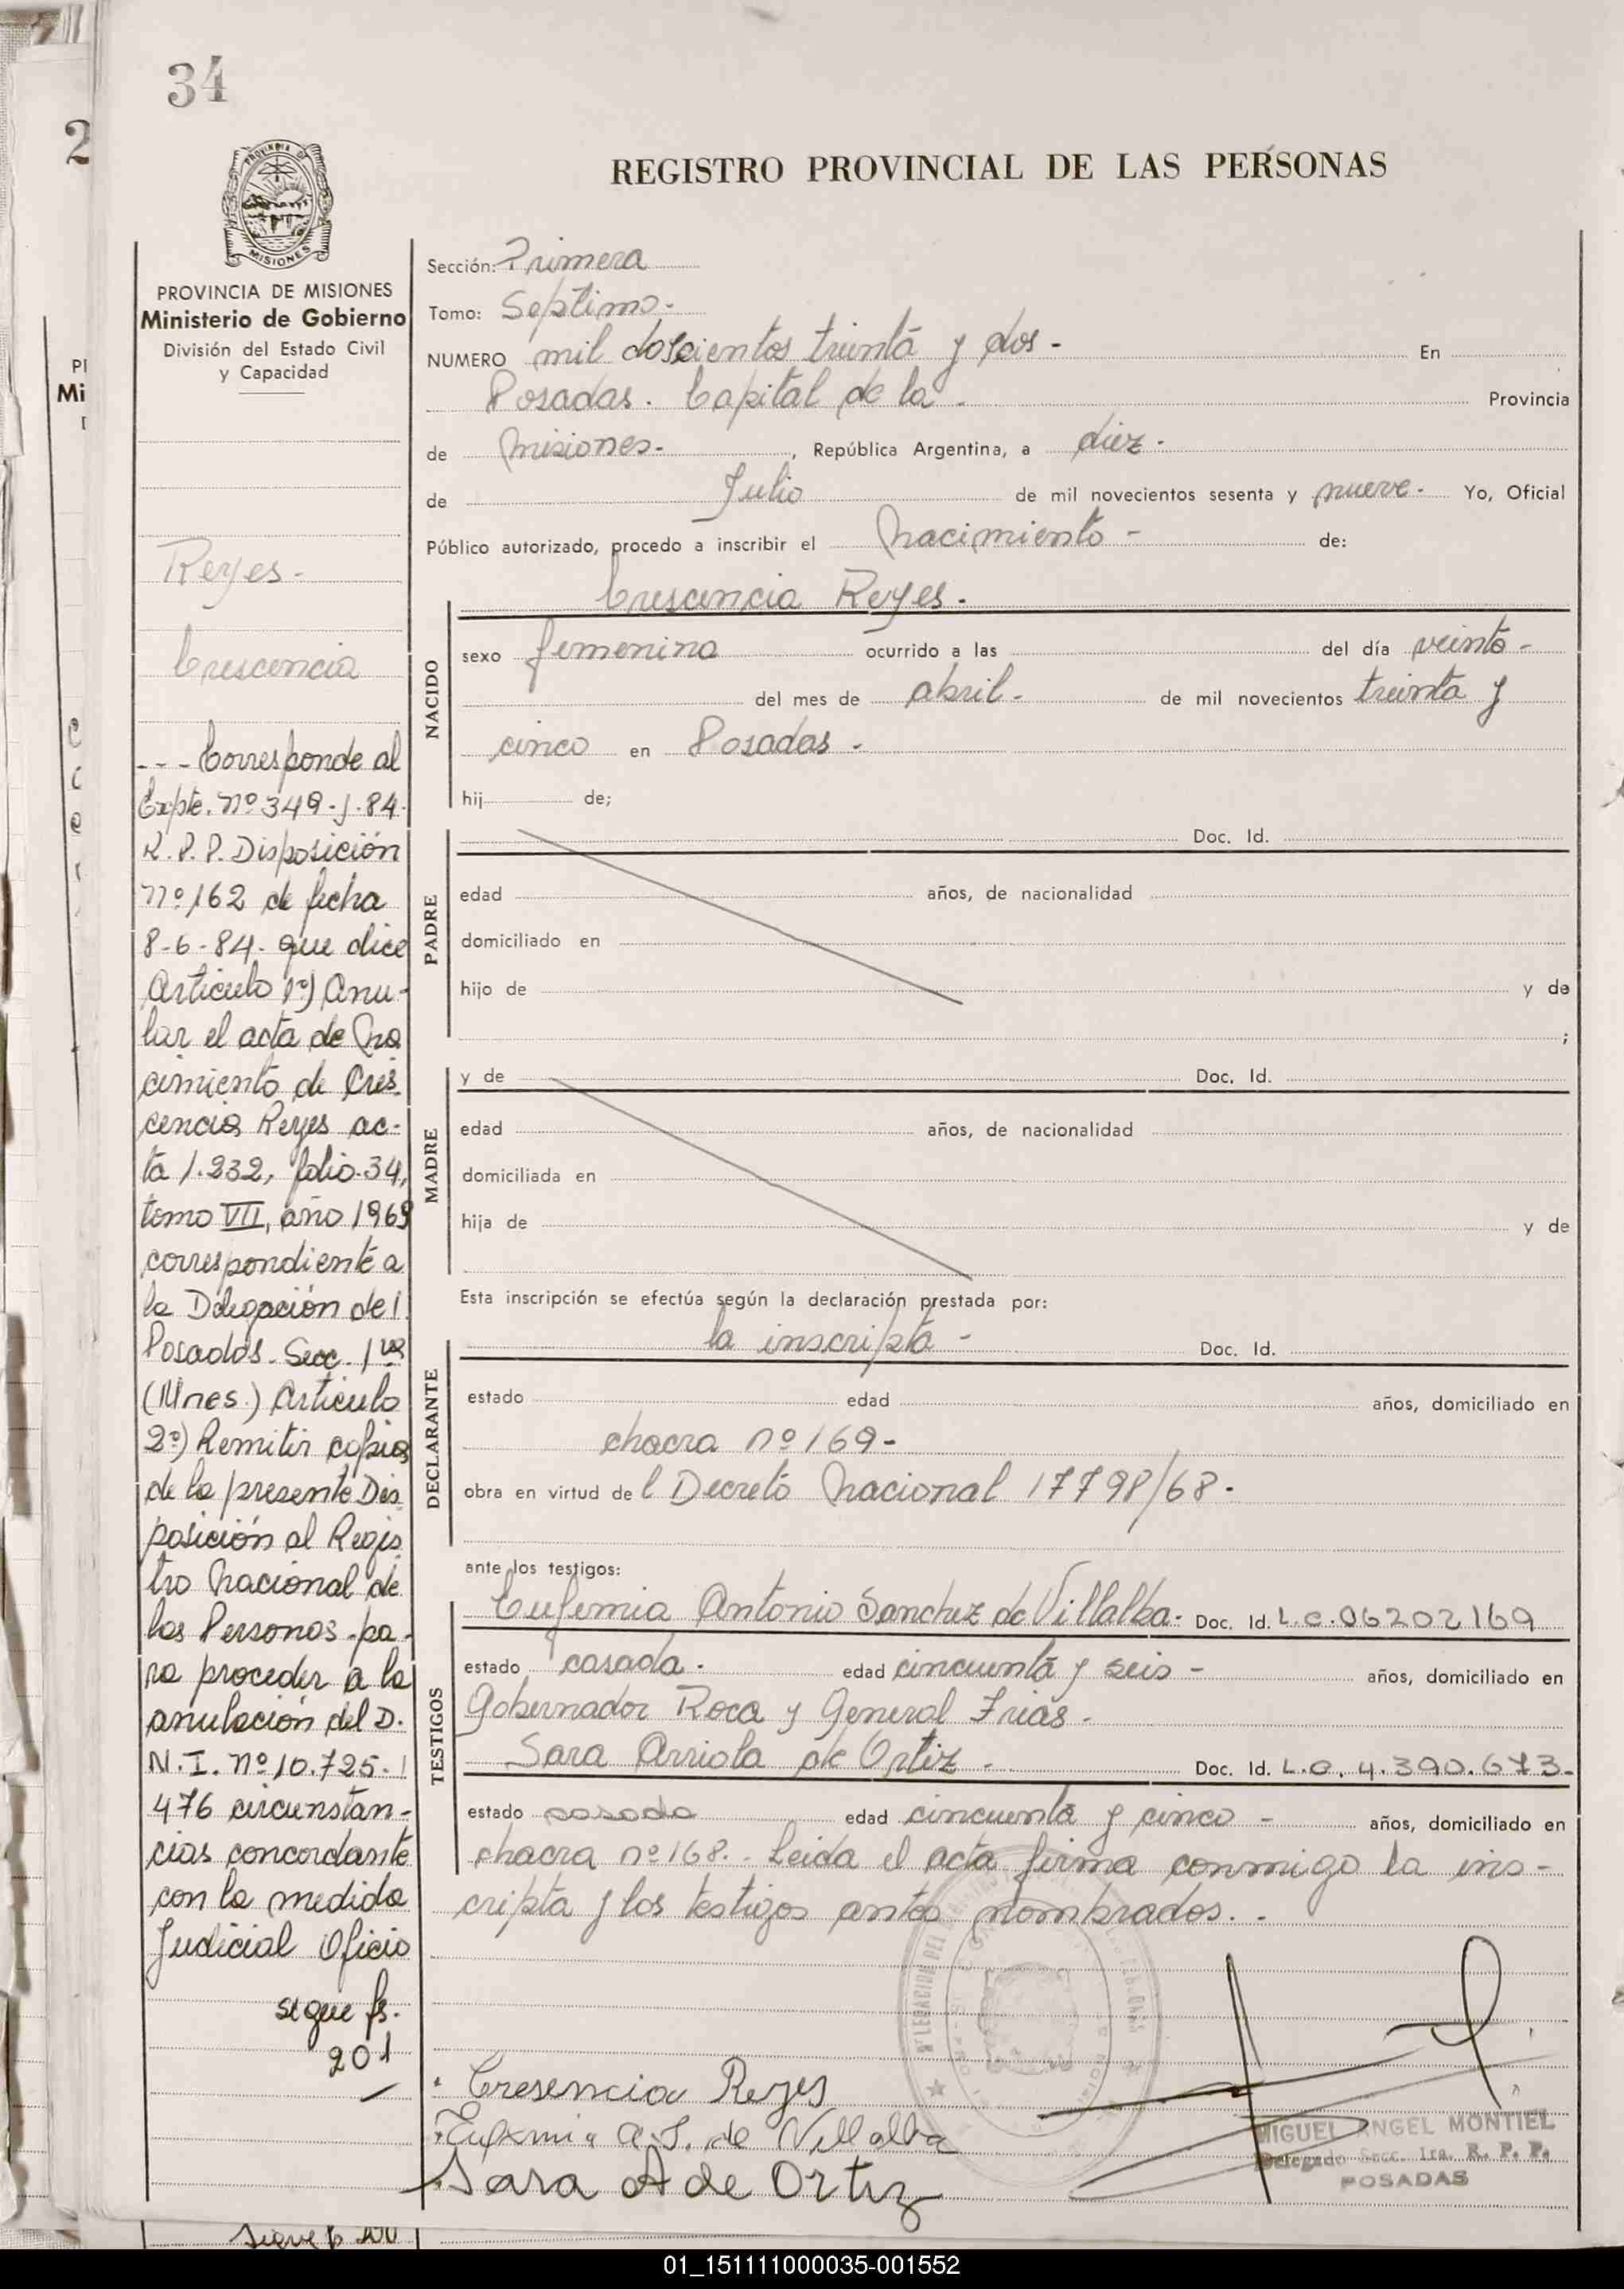 34
2
REGISTRO PROVINCIAL DE LAS PERSONAS
PROVINCIA DE
MISIONES
PROVINCIA DE MISIONES
Ministerio de Gobierno
División del Estado Civil
y Capacidad
Reyes-
Crescencia
--- Corresponde al
Expte. Nº 349-J-84.
R.P.P. Disposición
Nº 162 de fecha
8-6-84- que dice
Articulo 1º) Anu-
lar el acta de Na
cimiento de Cres-
cencia Reyes ac-
ta 1.232, folio 34,
tomo VII, año 1969
correspondiente a
la Delegación de
Posadas. Secc. 1ra
(Mnes.) Articulo
2º) Remitir copia
de la presente Dis-
posición al Regis
tro Nacional de
las Personas pa-
ra proceder a la
anulación del D.
N.I. Nº 10.725.
476 circunstan-
cias concordante
con la medida
Judicial Oficio
sigue fs.
201
Sección: Primera
Tomo: Septimo-
NUMERO mil doscientos treinta y dos - En
Posadas. Capital de la - Provincia
de Misiones- , República Argentina, a diez -
de Julio de mil novecientos sesenta y nueve- Yo, Oficial
Público autorizado, procedo a inscribir el Nacimiento - de:
Crescencia Reyes.
NACIDO
sexo femenino ocurrido a las del día veinte-
del mes de abril- de mil novecientos treinta y
cinco en Posadas -
hij de;
Doc. Id.
PADRE
edad años, de nacionalidad
domiciliado en
hijo de y de
;
y de Doc. Id.
MADRE
edad años, de nacionalidad
domiciliada en
hija de y de
Esta inscripción se efectúa según la declaración prestada por:
la inscripta - Doc. Id.
DECLARANTE
estado edad años, domiciliado en
chacra nº 169-
obra en virtud de l Decreto Nacional 17798/68-
ante los testigos:
Eufemia Antonia Sanchez de Villalba- Doc. Id. L.C. 06202169
TESTIGOS
estado casada- edad cincuenta y seis - años, domiciliado en
Gobernador Roca y General Frias-
Sara Arriola de Ortiz - Doc. Id. L.C. 4.390.673-
estado casada edad cincuenta y cinco - años, domiciliado en
chacra nº 168.- Leida el acta firma conmigo la ins-
cripta y los testigos antes nombrados. -
Cresencia Reyes
Eufemia A. S. de Villalba
Sara A de Ortiz
MIGUEL ANGEL MONTIEL
Delegado Secc. 1ra. R. P. P.
POSADAS
sigue fs 200
01_151111000035-001552